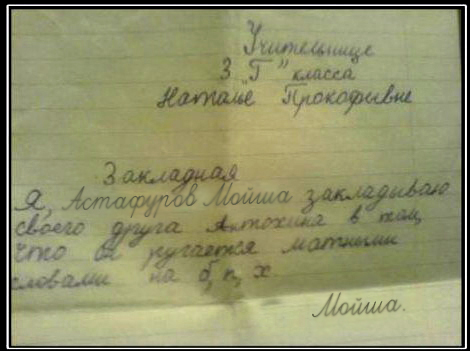 Учительнице
3 "Г" класса
Наталье Прокофивне
Закладная
Я, Астафуров Мойша закладываю
своего друга Антохина в том,
что он ругается матными
словами на б, п, х
Мойша.